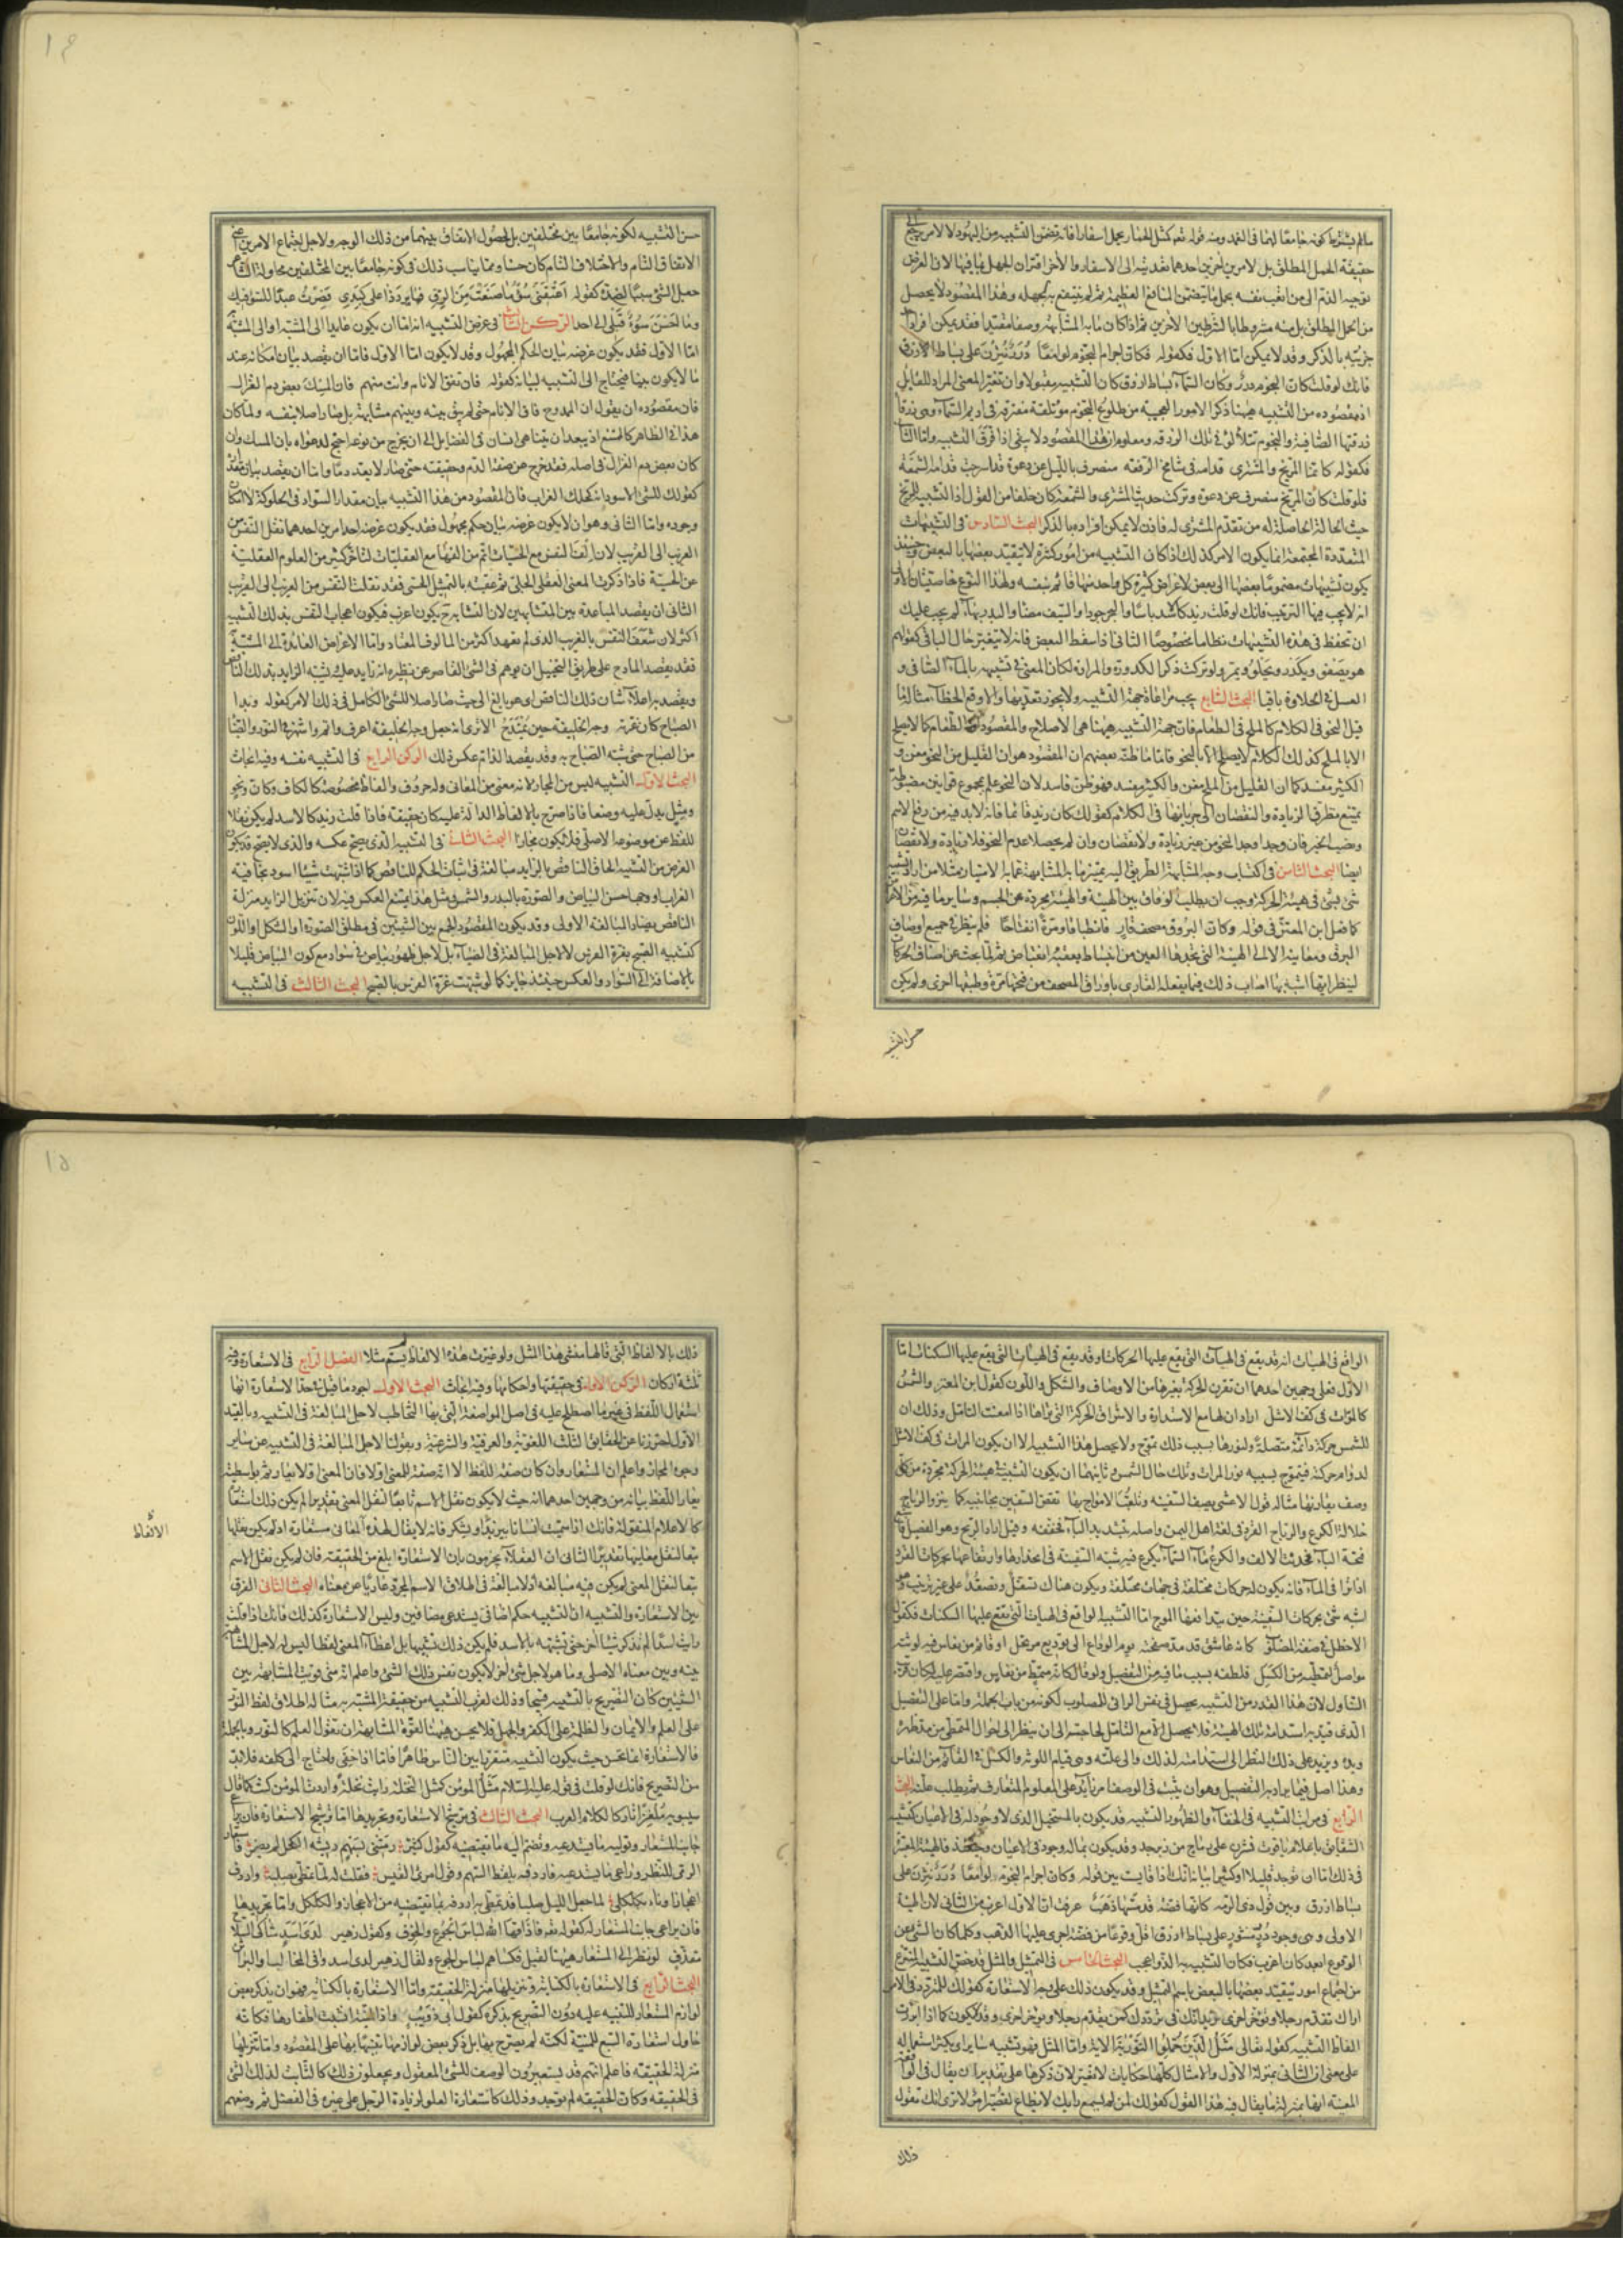 مالم يشترط كونه جامعًا لهما فى الغمد ومنه قوله تعم كمثل الحمار يحمل اسفارا فانه تضمن التشبيه من اليهود لا لامر يرجع الى
حقيقة الحمل المطلق بل لامرين آخرين احدهما تعديته الى الاسفار والآخر اقتران الجهل بما فيها لان الغرض
توجيه الذم الى من اتعب نفسه بحمل ما يتضمن المنافع العظيمة ثم لم ينتفع به لجهله وهذا المقصود لا يحصل
من الحمل المطلق بل منه مشروطا بالشرطين الآخرين ثم اذا كان ما به المشابهة وصفا مقيدا فقد يمكن افراد
جزئيه بالذكر وقد لا يمكن اما الاول فكقوله فكان اجرام النجوم لوامعًا دُرَرٌ نُثِرْنَ على بساط الازرق
فانك لو قلت كان النجوم درر وكان السماء بساط ازرق كان التشبيه مقبولا وان تغير المعنى المراد للقايل
اذ مقصوده من التشبيه هيهنا ذكر الامور العجيبة من طلوع النجوم مؤتلفة مفترقة فى اديم السماء وهى زرقاء
زرقتها الصافية والنجوم تتلألؤ فى تلك الزرقه ومعلوم ان هذا المقصود لا يبقى اذا فرق التشبيه واما الثانى
فكقوله كانما المريخ والمشترى قدامه فى شامخ الرفعه منصرف بالليل عن دعوة قد اسرجت قدامه الشمعة
فلو قلت كان المريخ منصرف عن دعوة وتركت حديث المشترى والشمعة كان خلفا من القول اذ التشبيه للمريخ
حيث الحالة الحاصلة له من تقدم المشترى له فاذن لا يمكن افراده بالذكر البحث السادس فى التشبيهات
المتعددة المجتمعة انما يكون الامر كذلك اذا كان التشبيه من امور كثيرة لا يتقيد بعضها بالبعض وحينئذ
يكون تشبيهات مضمومًا بعضها الى بعض لاغراض كثيرة كل واحد منها قائم بنفسه ولهذا النوع خاصيتان الاولى
انه لا يجب فيها الترتيب فانك لو قلت زيد كالاسد باسا والبحر جودا والسيف مضاء والبدر بهاء لم يجب عليك
ان تحفظ فى هذه التشبيهات نظاما مخصوصًا الثانى اذا سقط البعض فانه لا يتغير حال الباقى كقولهم
هو يصفو ويكدر ويحلو ويمر ولو تركت ذكر الكدورة والمرارة لكان المعنى فى تشبيهه بالماء الصافى و
العسل فى الحلاوة باقيا البحث السابع يجب مراعاة جهة التشبيه ولا يجوز تعديها والا وقع الخطاء مثاله ما
قيل النحو فى الكلام كالملح فى الطعام فان جهة التشبيه هيهنا هى الاصلاح والمقصود ان الطعام كما لا يصلح
الا بالملح كذلك الكلام لا يصلح الا بالنحو فاما ما ظنه بعضهم ان المقصود هو ان القليل من النحو مغن و
الكثير مفسد كما ان القليل من الملح مغن والكثير مفسد فهو ظن فاسد لان النحو علم بمجموع قوانين مضبوطة
يمتنع تطرق الزيادة والنقصان الى جريانها فى الكلام كقولك كان زيد قائما فانه لا بد فيه من رفع الاسم
ونصب الخبر فان وجدا وجد النحو من غير زيادة ولا نقصان وان لم يحصلا عدم النحو فلا زيادة ولا نقصان
ايضا البحث الثامن فى اكتساب وجه المشابهة الطريق اليه تمييز ما به المشابهة عما به الامتياز مثلا من اراد تشبيه
شئ بشئ فى هيئة الحركة وجب ان يطلب الوفاق بين الهيئة والهيئة مجردة عن الجسم وساير ما فيه من الالوان
كما فعل ابن المعتز فى قوله وكان البرق مصحف قار فانطباقا مرة وانفتاحًا فلم ينظر فى جميع اوصاف
البرق ومعانيه الا الى الهيئة التى تجدها العين من انبساط يعقبه انقباض ثم لما بحث عن اصناف الحركات
لينظر ايها اشبه بها اصاب ذلك فيما يفعله القارى باوراق المصحف من فتحها مرة وطبقها اخرى ولم يكن
حسن التشبيه
١٤
حسن التشبيه لكونه جامعًا بين مختلفين بل لحصول الاتفاق بينهما من ذلك الوجه ولاجل اجتماع الامرين اعنى
الاتفاق التام والاختلاف التام كان حسنا ومما يناسب ذلك فى كونه جامعًا بين المختلفين محاولة الشاعر
جعل الشئ سببًا لضده كقوله اعتقنى سوء ما صنعت من الرق فيا بردها على كبدى فصرت عبدًا للسوء فيك
وما احسن سوء قبلى الى احد الركن الثالث فى غرض التشبيه انه اما ان يكون عايدا الى المشبه او الى المشبه به
اما الاول فقد يكون غرضه بيان الحكم المجهول وقد لا يكون اما الاول فاما ان يقصد بيان امكانه عند
ما لا يكون بينا فيحتاج الى التشبيه لبيانه كقوله فان تفق الانام وانت منهم فان المسك بعض دم الغزال
فان مقصوده ان يقول ان الممدوح فاق الانام حتى لم يبق بينه وبينهم مشابهة بل صار اصلا بنفسه ولما كان
هذا فى الظاهر كالممتنع اذ يبعد ان يتناهى انسان فى الفضايل الى ان يخرج من نوعه احتج لدعواه بان المسك وان
كان بعض دم الغزال فى اصله فقد خرج عن صفة الدم وحقيقته حتى صار لا يعد دمًا واما ان يقصد بيان مقداره
كقولك للشئ الاسود انه كحلك الغراب فان المقصود من هذا التشبيه بيان مقدار السواد فى الحلوكة لا امكان
وجوده واما الثانى وهو ان لا يكون غرضه بيان حكم مجهول فقد يكون غرضه احد امرين احدهما نقل النفس من
الغريب الى القريب لان الف النفس مع الحسيات اتم من الفها مع العقليات لتاخر كثير من العلوم العقلية
عن الحسية فاذا ذكرت المعنى العقلى الجلى ثم عقبته بالتمثيل الحسى فقد نقلت النفس من الغريب الى القريب
الثانى ان يقصد المباعدة بين المتشابهين لان التشابه ح يكون اغرب فيكون اعجاب النفس بذلك التشبيه
اكثر لان شغف النفس بالغريب الذى لم يعهد اكثر من المالوف المعتاد واما الاغراض العايدة الى المشبه به
فقد يقصد المادح على طريق التخييل ان يوهم فى الشئ القاصر عن نظيره انه زايد عليه فيشبه الزايد بذلك الناقص
ويقصد به اعلاء شان ذلك الناقص اى هو بالغ الى حيث صار اصلا للشئ الكامل فى ذلك الامر كقوله وبدا
الصباح كان غرته وجه الخليفة حين يمتدح الا ترى انه جعل وجه الخليفة اعرف واتم واشهر فى النور والضياء
من الصباح حتى شبه الصباح به وقد يقصد الذام عكس ذلك الركن الرابع فى التشبيه نفسه وفيه ابحاث
البحث الاول التشبيه ليس من المجاز لانه معنى من المعانى وله حروف والفاظ مخصوصة كالكاف وكان ونحو
ومثل يدل عليه وضعا فاذا صرح بالالفاظ الدالة عليه كان حقيقة فاذا قلت زيد كالاسد لم يكن نقلا
للفظ عن موضوعه الاصلى فلا يكون مجازا البحث الثانى فى التشبيه الذى يصح عكسه والذى لا يصح قد يكون
الغرض من التشبيه الحاق الناقص بالزايد مبالغة فى اثبات الحكم للناقص كما اذا شبهت شيئا اسود بخافية
الغراب او وجها حسن البياض والصورة بالبدر والشمس فى مثل هذا يمتنع العكس فيه لان تنزيل الزايد منزلة
الناقص يضاد المبالغة الاولى وقد يكون المقصود الجمع بين الشيئين فى مطلق الصورة او الشكل او اللون
كتشبيه الصبح بغرة الفرس لا لاجل المبالغة فى الضياء بل لاجل ظهور بياض فى سواد مع كون البياض قليلا
بالاضافة الى السواد والعكس حينئذ جايز كما لو شبهت غرة الفرس بالصبح البحث الثالث فى التشبيه
الواقع فى الهيئات انه قد يقع فى الهيئات التى يقع عليها الحركات وقد يقع فى الهيئات التى يقع عليها السكنات اما
الاول فعلى وجهين احدهما ان تقرن الحركة بغيرها من الاوصاف والشكل واللون كقول ابن المعتز والشمس
كالمرآة فى كف الاشل اراد ان لها مع الاستدارة والاشراق الحركة التى تراها اذا امعنت التامل وذلك ان
للشمس حركة دائمة متصلة ولنورها بسبب ذلك تموج ولا يحصل هذا التشبيه الا ان يكون المرآة فى كف الاشل
لدوام حركته فيتموج بسببه نور المرآة وتلك حال الشمس وثانيهما ان يكون التشبيه فى هيئة الحركة مجردة من كل
وصف يقارنها مثاله قول الاعشى يصف السفينه وتلعب الامواج بها تقص السفين بجانبيه كما ينزو الرباح
خلا له الكرع والرباح القرد فى لغة اهل اليمن واصله بتشديد الباء فخففه وقيل اراد الربح وهو الفصيل فاشبع
فتحة الباء فحدثت الالف والكرع ماء السماء يكرع فيه شبه السفينة فى انحدارها وارتفاعها بحركات القرد
اذا نزا فى الماء فانه يكون له حركات مختلفة فى جهات مختلفة ويكون هناك تسفل وتصعد على غير ترتيب وهو
اشبه شئ بحركات السفينة حين يتدافعها الموج اما التشبيه الواقع فى الهيئات التى يقع عليها السكنات فكقول
الاخطل فى صفة المصلوب كانه عاشق قد مد صفحته يوم الوداع الى توديع مرتحل او قائم من نعاس فيه لوثته
مواصل لتمطيه من الكسل فلطفه بسبب ما فيه من التفصيل ولو قال كانه متمط من نعاس واقتصر عليه كان قريب
التناول لان هذا القدر من التشبيه يحصل فى نفس الرائى للمصلوب لكونه من باب الجملة واما على التفصيل
الذى قيد به استدامة تلك الهيئة فلا يحصل الا مع التامل لحاجته الى ان ينظر الى احوال المتمطى من مد ظهره
ويده ويزيد على ذلك النظر الى استدامته لذلك والى علته وهى قيام اللوثه والكسل فى القائم من النعاس
وهذا اصل فيما يراد به التفصيل وهو ان يثبت فى الوصف امر زايد على المعلوم المتعارف ثم يطلب علته البحث
الرابع فى مراتب التشبيه فى الخفاء والظهور التشبيه قد يكون بالمتخيل الذى لا وجود له فى الاعيان كتشبيه
الشقايق باعلام ياقوت نشرن على رماح من زبرجد وقد يكون بما له وجود فى الاعيان وحينئذ فالهيئة المعتبرة
فى ذلك اما ان توجد قليلا او كثيرا بيانه انك اذا قايست بين قوله وكان اجرام النجوم لوامعًا دُرَرٌ نُثِرْنَ على
بساط ازرق وبين قول ذى الرمه كانها فضة قد مسها ذهب عرفت ان الاول اغرب من الثانى لان الهيئة
الاولى وهى وجود درٍ منثور على بساط ازرق اقل وقوعًا من فضة اجرى عليها الذهب وكلما كان الشئ عن
الوقوع ابعد كان اغرب فكان التشبيه به الذ واعجب البحث الخامس فى التمثيل والمثل قد خص التشبيه المنتزع
من اجتماع امور يتقيد بعضها بالبعض باسم التمثيل وقد يكون ذلك على وجه الاستعارة كقولك للمتردد فى الامر
اراك تقدم رجلا وتؤخر اخرى تريد انك فى ترددك كمن يقدم رجلا ويؤخر اخرى وقد لا يكون كما اذا ابرزت
الفاظ التشبيه كقوله تعالى مثل الذين حملوا التورية الآية واما المثل فهو تشبيه ساير اى يكثر استعماله
على معنى ان الثانى بمنزلة الاول والامثال كلها حكايات لا تغير لان ذكرها على تقدير ان يقال فى الواقعة
المعينة انها بمنزلة ما يقال فيه هذا القول كقولك لمن لم يسمع رايك لا يطاع لقصير امر الا ترى انك تقوله
ذلك
١٥
ذلك بالالفاظ التى قالها منشى هذا المثل ولو غيرت هذه الالفاظ لم يسم مثلا الفصل الرابع فى الاستعارة وفيه
ثلثة اركان الركن الاول فى حقيقتها واحكامها وفيه ابحاث البحث الاول اجود ما قيل فى حد الاستعارة انها
استعمال اللفظ فى غير ما اصطلح عليه فى اصل المواضعة التى بها التخاطب لاجل المبالغة فى التشبيه وبالقيد
الاول احترزنا عن الحقايق الثلث اللغوية والعرفية والشرعية وبقولنا لاجل المبالغة فى التشبيه عن ساير
وجوه المجاز واعلم ان المستعار وان كان صفة للفظ الا انه صفة للمعنى اولا فان المعنى اولا يعار ثم بواسطته
يعار اللفظ بيانه من وجهين احدهما انه حيث لا يكون نقل الاسم تابعًا لنقل المعنى تقديرا لم يكن ذلك استعارة
كالاعلام المنقولة فانك اذا سميت انسانا بيزيد او يشكر فانه لا يقال لهذه الالفاظ مستعارة اذ لم يكن نقلها
الالفاظ
تبعا لنقل معانيها تقديرًا الثانى ان العقلاء يجزمون بان الاستعارة ابلغ من الحقيقة فان لم يكن نقل الاسم
تبعا لنقل المعنى لم يكن فيه مبالغة اذ لا مبالغة فى اطلاق الاسم المجرد عاريًا عن معناه البحث الثانى الفرق
بين الاستعارة والتشبيه ان التشبيه حكم اضافى يستدعى مضافين وليس الاستعارة كذلك فانك اذا قلت
رايت اسدًا لم تذكر شيئا آخر حتى تشبهه بالاسد فلم يكن ذلك تشبيها بل اعطاء المعنى لفظا ليس له لاجل المشابهة
بينه وبين معناه الاصلى وما هو لاجل شئ آخر لا يكون نفس ذلك الشئ واعلم انه متى قويت المشابهة بين
الشيئين كان التصريح بالتشبيه قبيحا وذلك لقرب التشبيه من حقيقة المشبه به مثاله اطلاق لفظ النور
على العلم والايمان والظلمة على الكفر والجهل فلا يحسن هيهنا لقوة المشابهة ان تقول العلم كالنور وبالجملة
فالاستعارة انما تحسن حيث يكون التشبيه متقررا بين الناس ظاهرًا فاما اذا خفى واحتاج الى كلفة فلا بد
من التصريح فانك لو قلت فى قوله عليه السلام مثل المؤمن كمثل النخلة رايت نخلة واردت المؤمن كنت كما قال
سيبويه ملغزًا تاركا لكلام العرب البحث الثالث فى ترشيح الاستعارة وتجريدها اما ترشيح الاستعارة فان يراعى
جانب المستعار وتوليه ما يستدعيه وتضم اليه ما يقتضيه كقول كثير رمتنى بسهم ريشه الكحل لم يضر فاستعار
الرمى للنظر وراعى ما يستدعيه فاردفه بلفظ السهم وقول امرئ القيس فقلت له لما تمطى بصلبه واردف
اعجازا وناء بكلكل لما جعل الليل صلبا قد تمطى به اردفه بما تقتضيه من الاعجاز والكلكل واما تجريدها
فان يراعى جانب المستعار له كقوله تعم فاذاقها الله لباس الجوع والخوف وكقول زهير لدى اسد شاكى السلاح
مقذف لو نظر الى المستعار هيهنا لقيل فكساهم لباس الجوع ولقال زهير لدى اسد وافى المخالب والبراثن
البحث الرابع فى الاستعارة بالكناية وتنزيلها منزلة الحقيقة واما الاستعارة بالكناية فهو ان يذكر بعض
لوازم المستعار للتنبيه عليه دون التصريح بذكره كقول ابى ذؤيب واذا المنية انشبت اظفارها فكانه
حاول استعارة السبع للمنية لكنه لم يصرح بها بل ذكر بعض لوازمها تنبيها بها على المقصود واما تنزيلها
منزلة الحقيقة فاعلم انهم قد يستعيرون الوصف للشئ المعقول ويجعلون ذلك كالثابت لذلك الشئ
فى الحقيقة وكان الحقيقة لم توجد وذلك كاستعارة العلو لزيادة الرجل على غيره فى الفضل ثم وضعهم